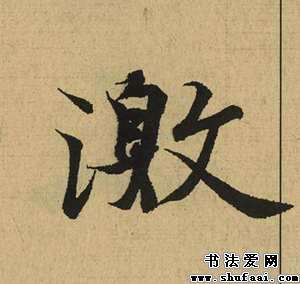 激
书法爱网
www.shufaai.com